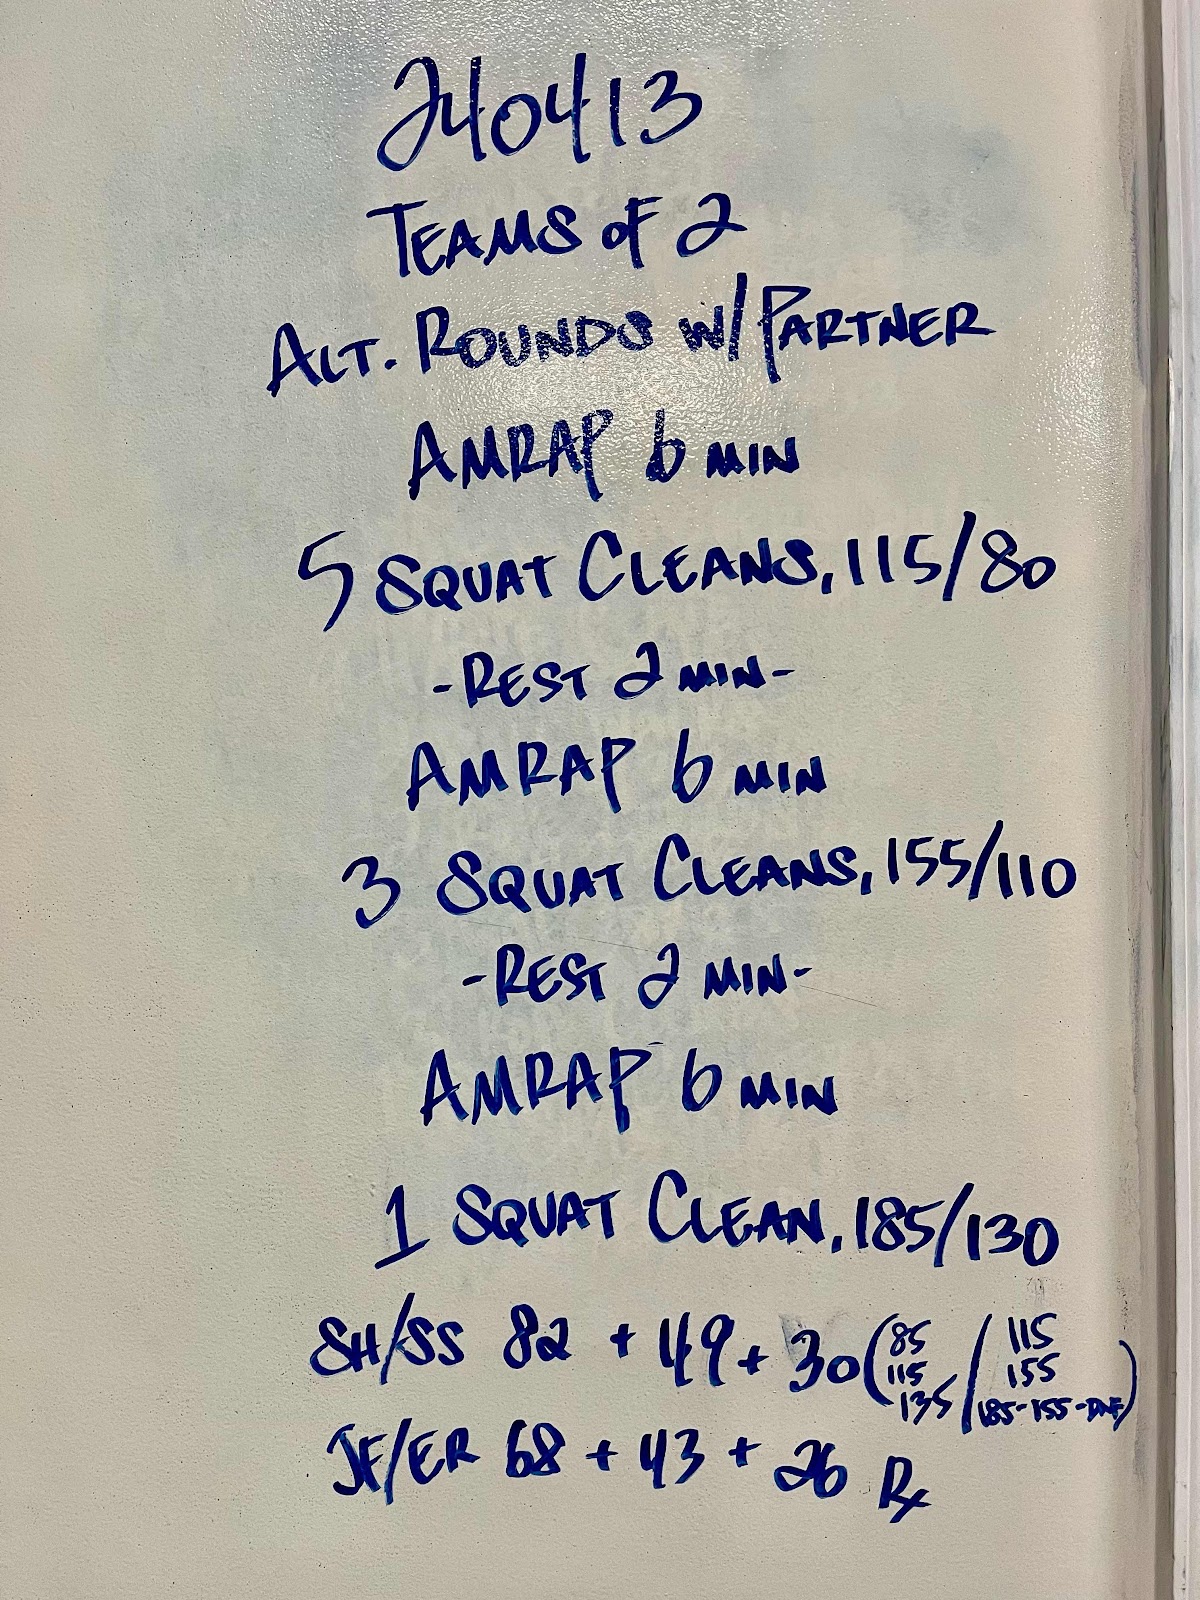 240413
TEAMS OF 2
ALT. ROUNDS W/ PARTNER
AMRAP 6 MIN
5 SQUAT CLEANS, 115/80
-REST 2 MIN-
AMRAP 6 MIN
3 SQUAT CLEANS, 155/110
-REST 2 MIN-
AMRAP 6 MIN
1 SQUAT CLEAN, 185/130
SH/SS 82 + 49 + 30 (85 / 115
115 / 155
135 / 185-155-DNF)
JF/ER 68 + 43 + 26 Rx